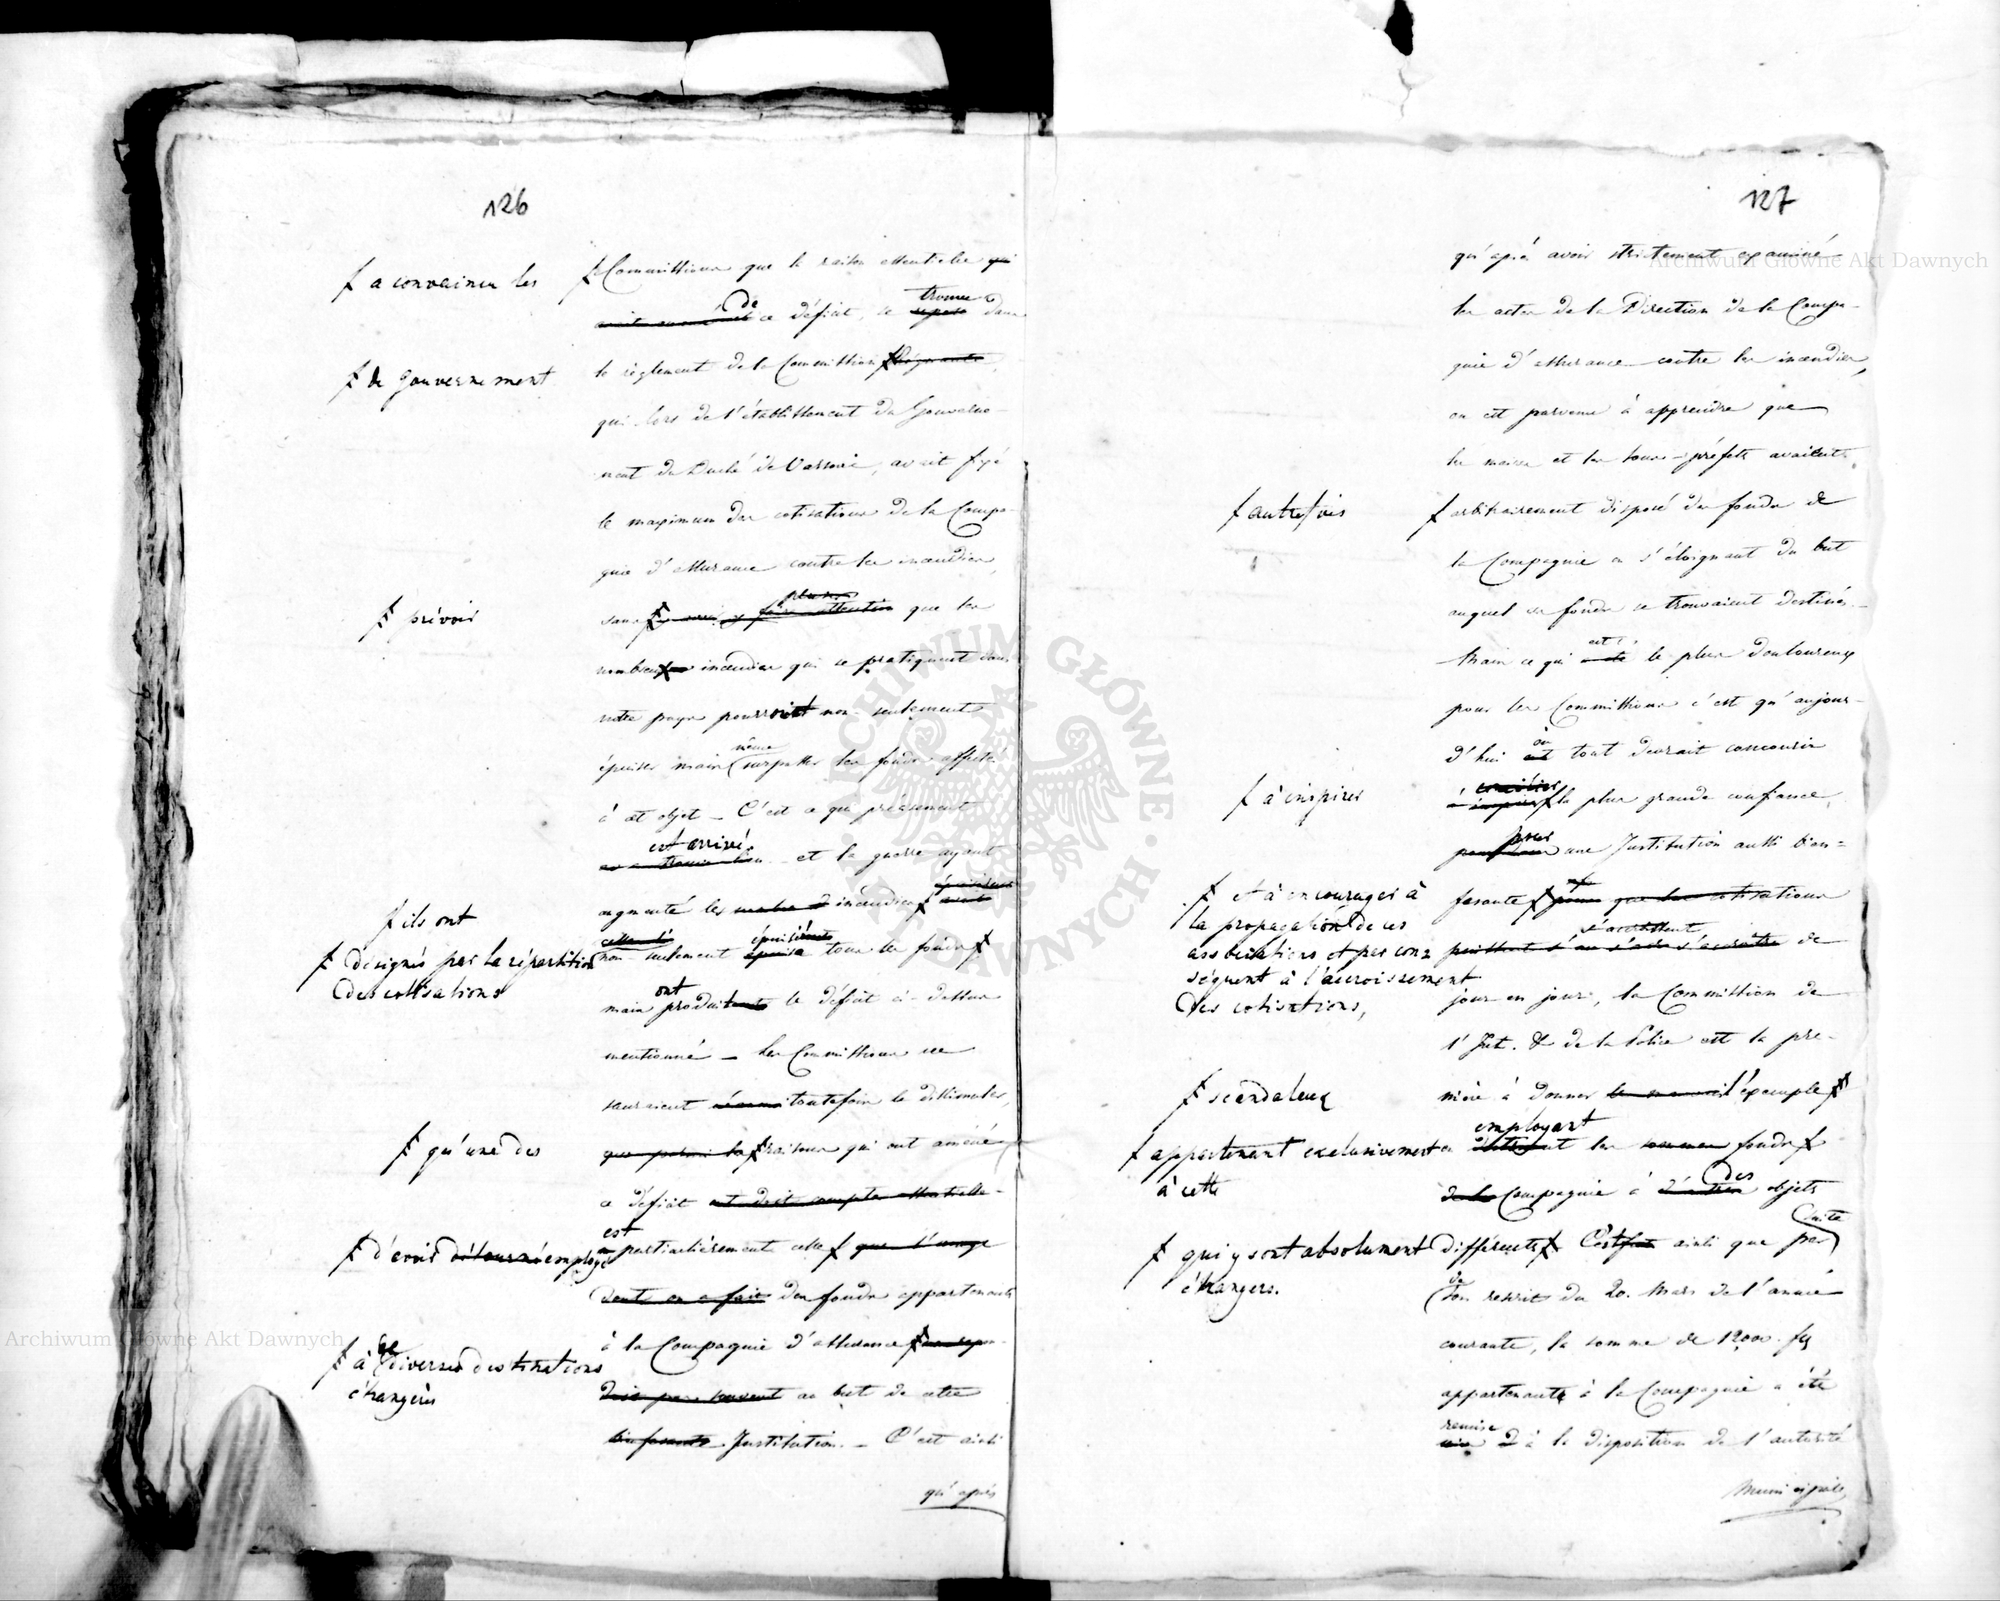 126
ƒ a convaincu les
ƒ de Gouvernement
ƒ prévoir
ƒ ils ont
ƒ désignés par la répartition
des cotisations
ƒ qu'une des
ƒ d'avoir détourné employé
ƒ à de diverses destinations
étrangères
ƒ Commissions que la raison essentielle qui
de ce déficit, se trouve repose dans
le règlement de la Commission ƒ Régnante,
qui lors de l'établissement du Gouverne-
ment du Duché de Varsovie, avait fixé
le maximum des cotisations de la Compa-
gnie d'assurance contre les incendies,
sans ƒ y faire attention que les
nombreux incendies qui se pratiquent dans
notre pays pourroient non-seulement
épuiser mais même surpasser les fonds affectés
à cet objet _ C'est ce qui précisément
est arrivé et la guerre ayant
augmenté les nombre d' incendies ƒ
non-seulement tous les fonds ƒ
mais ont produit le déficit ci-dessus
mentionné _ Les Commissions ne
sauraient toutefois se dissimuler,
que parmi les ƒ raisons qui ont amené
ce déficit
est particulièrement celle ƒ que l'usage
dont on a fait des fonds appartenants
à la Compagnie d'assurance ƒ
au but de cette
bienfaisante Institution. _ C'est ainsi
qu'après
127
qu'après avoir strictement examiné
les actes de la Direction de la Compa-
gnie d'assurance contre les incendies,
on est parvenu à apprendre que
les maires et les sous-préfets avaient
ƒ autrefois
ƒ arbitrairement disposé des fonds de
la Compagnie en s'éloignant du but
auquel ces fonds se trouvaient destinés _
Mais ce qui est le plus douloureux
pour les Commissions c'est qu'aujour-
d'hui où tout devrait concourir
ƒ à inspirer
ƒ la plus grande confiance,
pour une Institution aussi bien=
ƒ et à encourager à
la propagation de ces
associations et par con=
séquent à l'accroissement
des cotisations,
faisante ƒ pour que les cotisations
s'accroissent puissent s'accroître de
jour en jour, la Commission de
l'Int. & de la Police est la pre-
mière à donner l'éxemple ƒ
ƒ scandaleux
en employant les sommes fonds ƒ
ƒ appartenant exclusivement
à cette
de la Compagnie à d'autres des objets
ƒ qui y sont absolument
étrangers.
différents ƒ C'est ainsi que par suite
de son rescrit du 20. Mars de l'année
courante, la somme de 12,000. fl
appartenante à la Compagnie a été
remise à la disposition de l'autorité
Municipale
Archiwum Główne Akt Dawnych
Archiwum Główne Akt Dawnych
ARCHIWUM GŁÓWNE AKT DAWNYCH